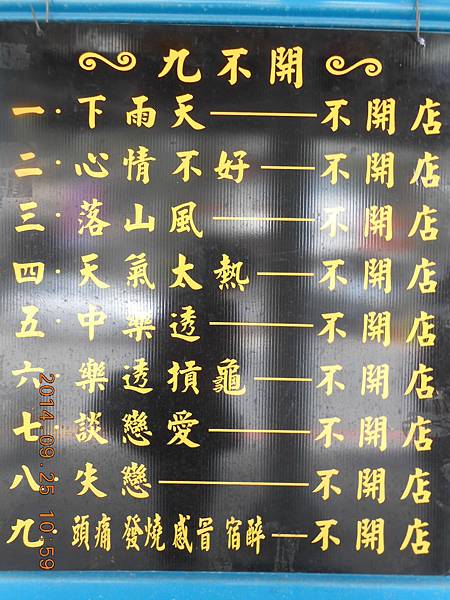 九不開
一·下雨天——不開店
二·心情不好——不開店
三·落山風——不開店
四·天氣太熱——不開店
五·中樂透——不開店
六·樂透摃龜——不開店
七·談戀愛——不開店
八·失戀——不開店
九·頭痛發燒感冒宿醉——不開店
2014.09.25 10:59